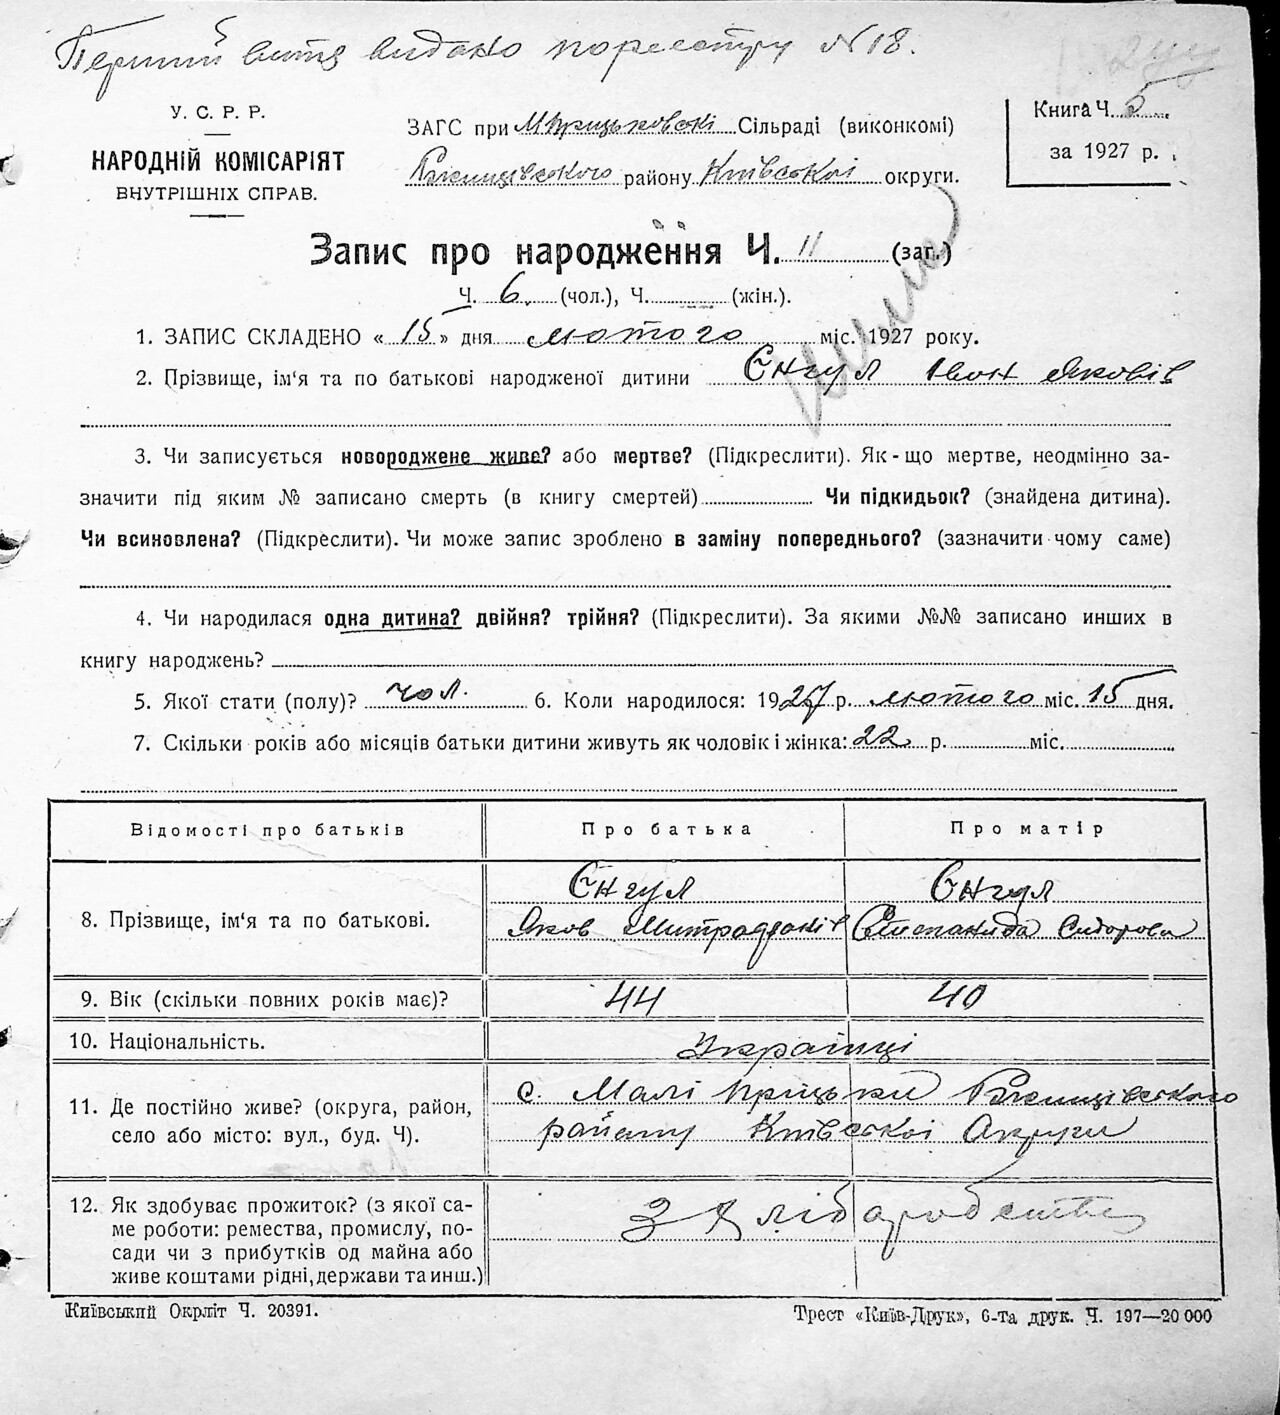 Перший витяг видано пореєстру N 18.
У. С. Р. Р.
НАРОДНІЙ КОМІСАРІЯТ
ВНУТРІШНІХ СПРАВ.
ЗАГС при М Прицьковскі Сільраді (виконкомі)
Ржищівського району Київської округи.
Книга Ч. 5
за 1927 р.
Запис про народження Ч. 11 (заг.)
Ч. 6. (чол.), Ч. (жін.).
1. ЗАПИС СКЛАДЕНО « 15 » дня лютого міс. 1927 року.
2. Прізвище, ім'я та по батькові народженої дитини Єнгул Іван Яковів
3. Чи записується новороджене живе? або мертве? (Підкреслити). Як-що мертве, неодмінно за-
значити під яким № записано смерть (в книгу смертей) Чи підкидьок? (знайдена дитина).
Чи всиновлена? (Підкреслити). Чи може запис зроблено в заміну попереднього? (зазначити чому саме)
4. Чи народилася одна дитина? двійня? трійня? (Підкреслити). За якими №№ записано инших в
книгу народжень?
5. Якої стати (полу)? чол. 6. Коли народилося: 1927 р. лютого міс. 15 дня.
7. Скільки років або місяців батьки дитини живуть як чоловік і жінка: 22 р. міс.
Відомості про батьків Про батька Про матір
Єнгул Єнгул
8. Прізвище, ім'я та по батькові. Яков Митрофанів Степанида Сидорова
9. Вік (скільки повних років має)? 44 40
10. Національність. Українці
с. Малі Пріцьки Ржищівського
11. Де постійно живе? (округа, район,
село або місто: вул., буд. Ч). району Київської Округи
12. Як здобуває прожиток? (з якої са-
ме роботи: ремества, промислу, по- З Хліборобства
сади чи з прибутків од майна або
живе коштами рідні, держави та инш.)
Київський Окрліт Ч. 20391. Трест «Київ-Друк», 6-та друк. Ч. 197—20 000